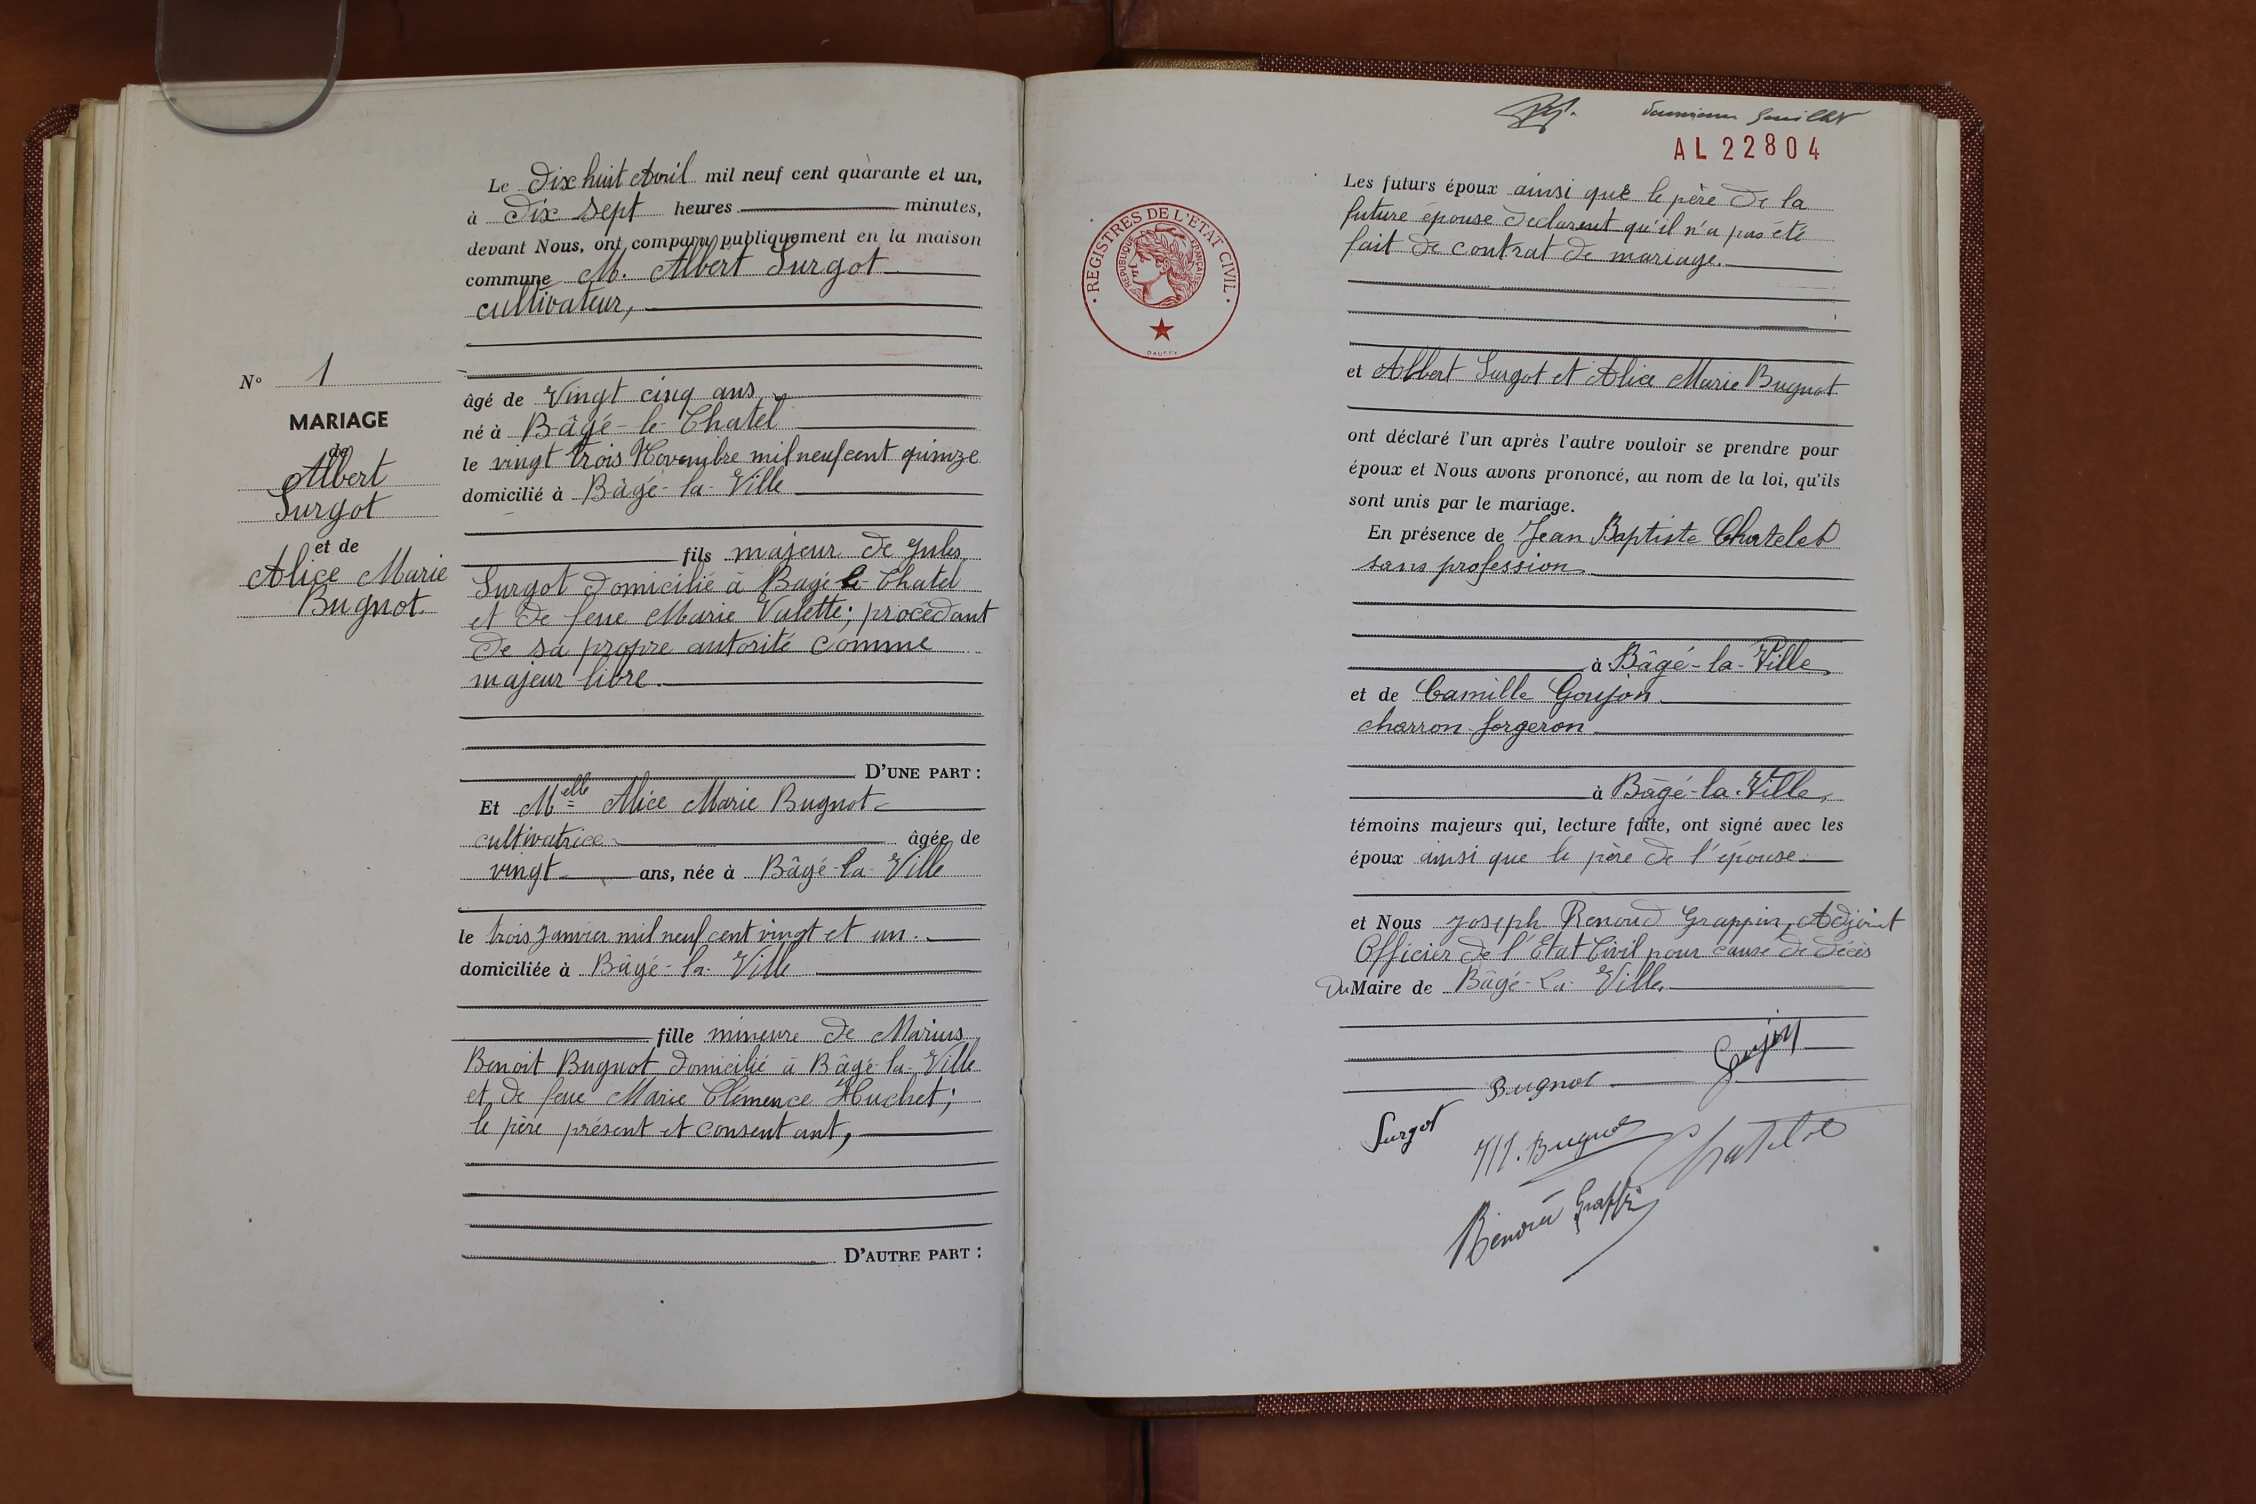 N° 1
MARIAGE
de
Albert
Surgot
et de
Alice Marie
Bugnot
Le Dix huit Avril mil neuf cent quarante et un,
à Dix sept heures minutes,
devant Nous, ont comparu publiquement en la maison
commune M. Albert Surgot
cultivateur,
âgé de Vingt cinq ans
né à Bâgé-le-Chatel
le vingt trois Novembre mil neuf cent quinze
domicilié à Bâgé-la-Ville
fils majeur de Jules
Surgot domicilié à Bagé-le-Chatel
et de feue Marie Valette; procédant
de sa propre autorité comme
majeur libre.
D'UNE PART :
Et Melle Alice Marie Bugnot
cultivatrice âgée de
vingt ans, née à Bâgé-la-Ville
le trois Janvier mil neuf cent vingt et un.
domiciliée à Bâgé-la-Ville
fille mineure de Marius
Benoit Bugnot domicilié à Bâgé-la-Ville
et de feue Marie Clémence Huchet;
le père présent et consentant,
D'AUTRE PART :
AL 22804
REGISTRES DE L'ÉTAT CIVIL
RÉPUBLIQUE FRANÇAISE
Les futurs époux ainsi que le père de la
future épouse déclarent qu'il n'a pas été
fait de contrat de mariage.
et Albert Surgot et Alice Marie Bugnot
ont déclaré l'un après l'autre vouloir se prendre pour
époux et Nous avons prononcé, au nom de la loi, qu'ils
sont unis par le mariage.
En présence de Jean Baptiste Chatelet
sans profession
à Bâgé-la-Ville
et de Camille Goujon
charron forgeron
à Bâgé-la-Ville,
témoins majeurs qui, lecture faite, ont signé avec les
époux ainsi que le père de l'épouse.
et Nous Joseph Renoud Grappin, Adjoint
Officier de l'Etat Civil pour cause de décès
du Maire de Bâgé-La-Ville.
Goujon
Bugnot
Surgot
Bugnot
Chatelet
Renoud Grappin